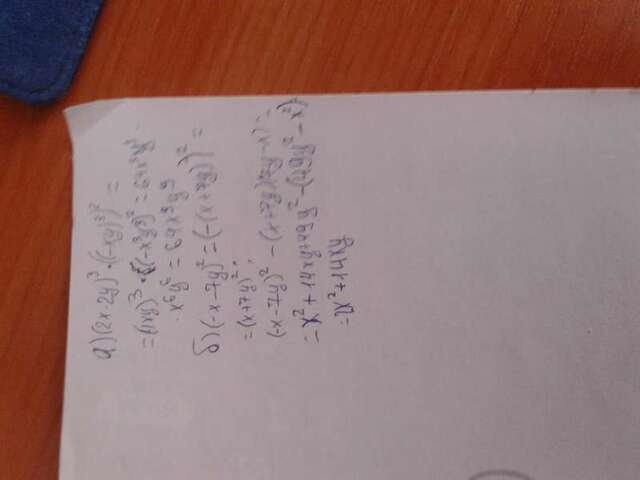 а) (2x·2y)³·((-xy)³)² =
= (4xy)³·(-x³y³)² = 64x³y³·
x⁶y⁶ = 64x⁹y⁹
б) (-x-7y)² = (-(x+7y))² =
= (x+7y)²;
(-x-7y)² - (x+7y)(7y-x) =
= x² + 14xy+49y² - (49y² - x²) =
= 2x² + 14xy